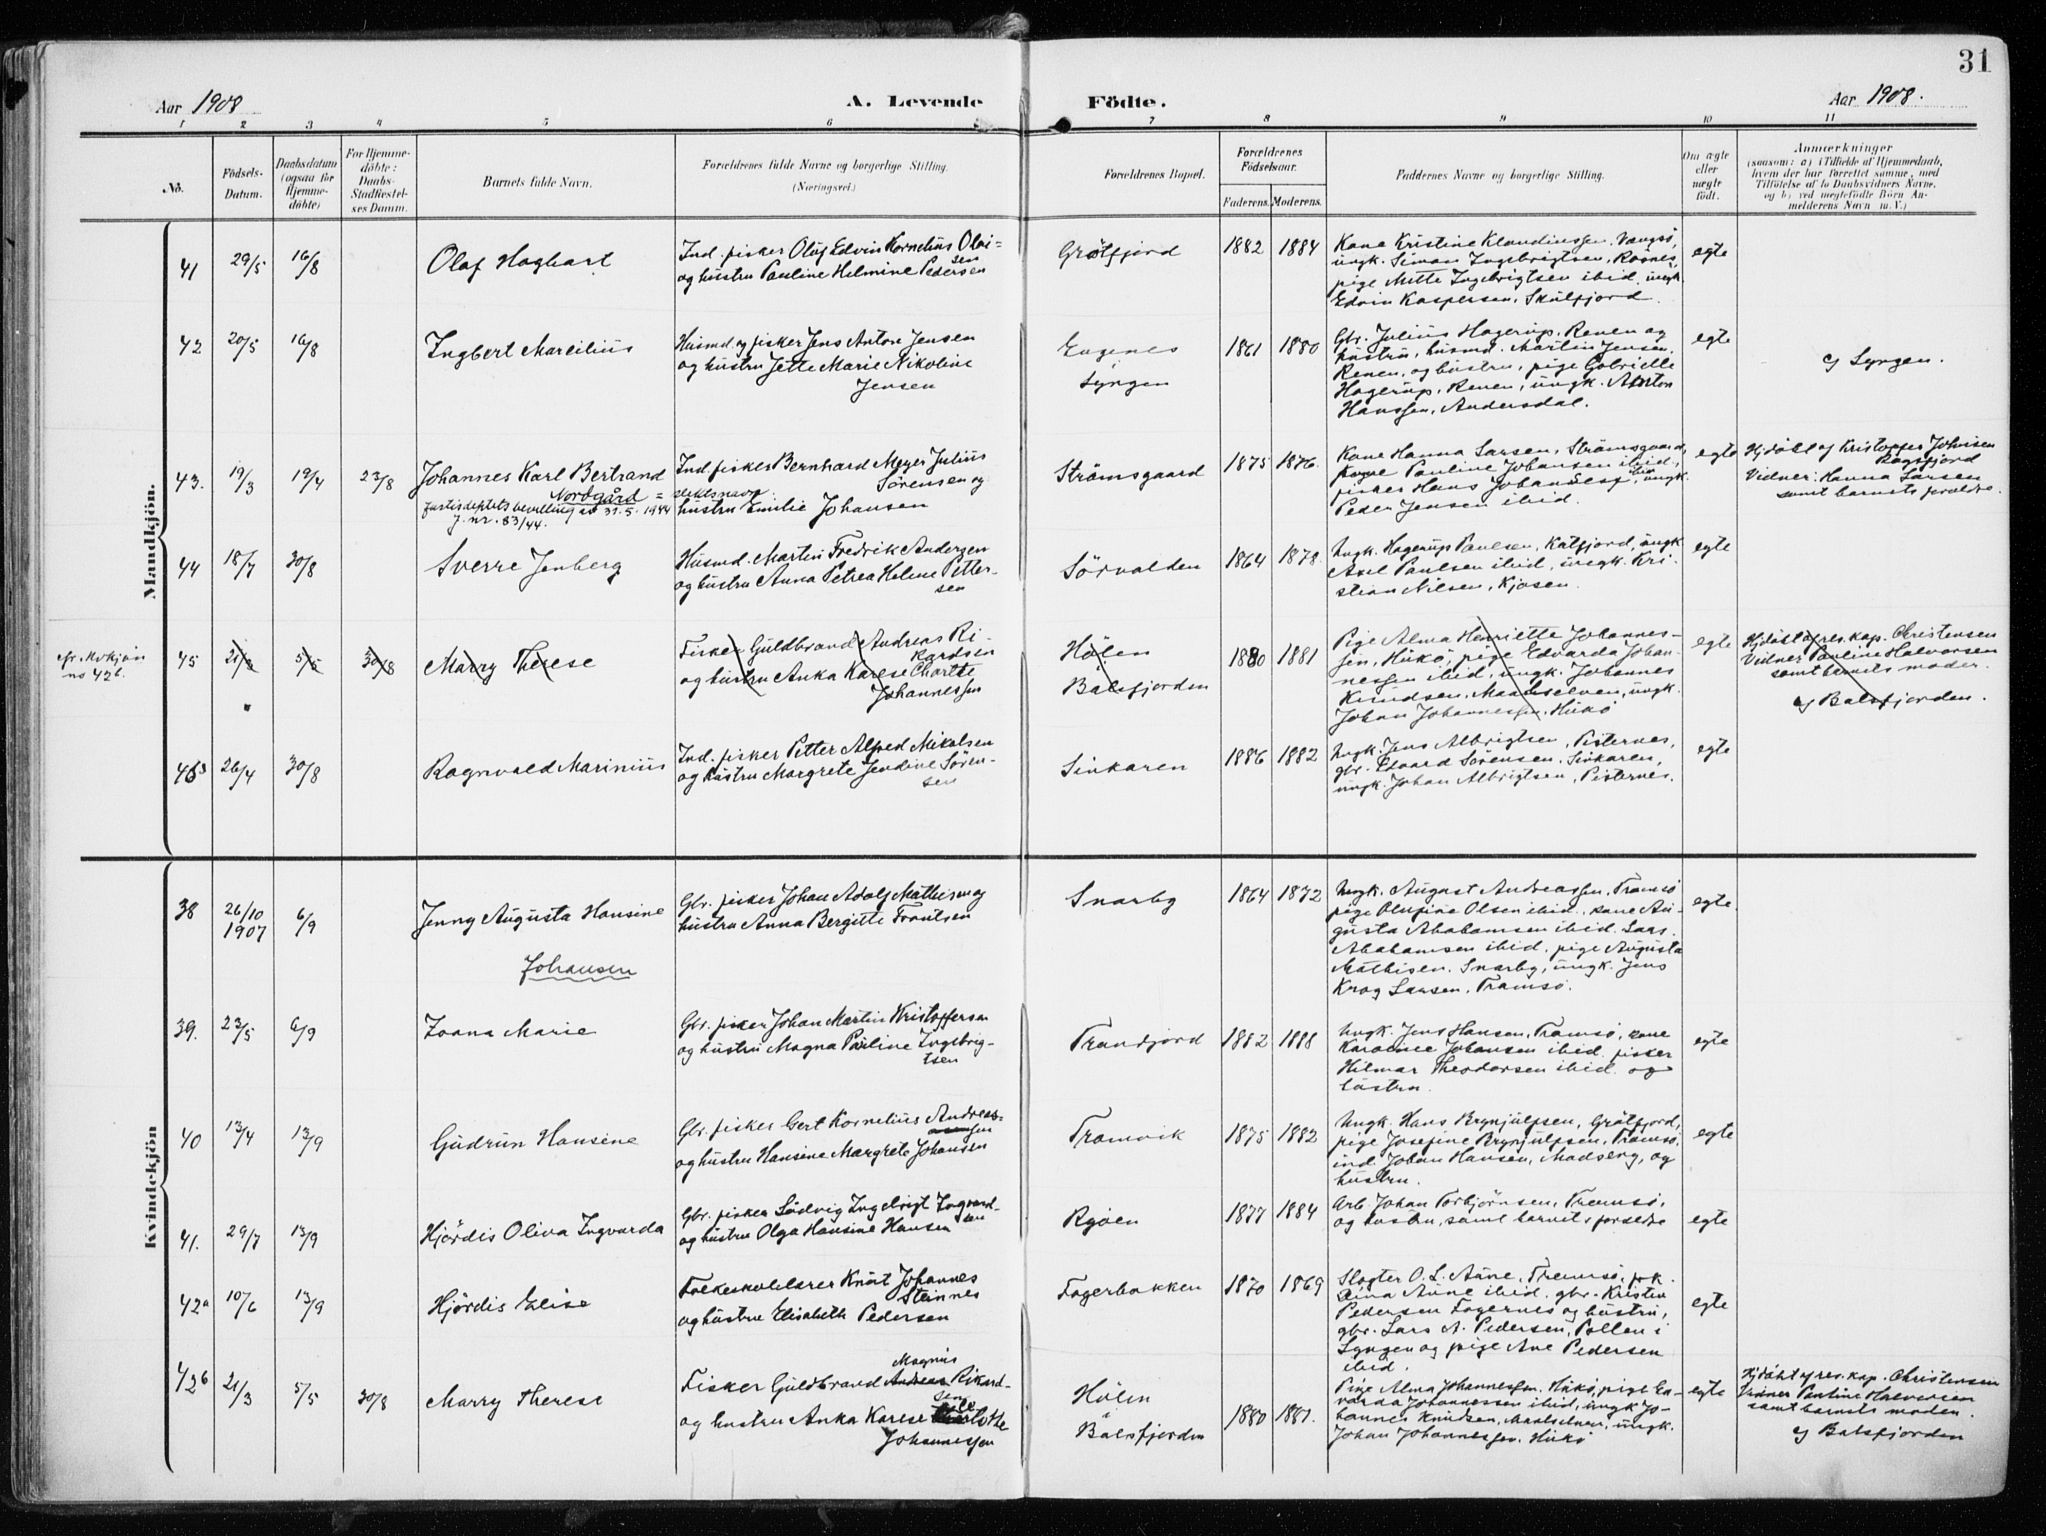 31
Aar 1908
A. Levende
Födte.
Aar 1908.
1 2 3 4 5 6 7 8 9 10 11
No.
Födsels-
Datum.
Daabsdatum
(ogsaa for
Hjemme-
döbte)
For Hjemme-
döbte:
Daabs-
Stadfæstel-
ses Datum.
Barnets fulde Navn.
Forældrenes fulde Navne og borgerlige Stilling.
(Næringsvei.)
Forældrenes Bopæl.
Forældrenes
Födselsaar.
Faderens. Moderens.
Faddernes Navne og borgerlige Stilling.
Om ægte
eller
uægte
födt.
Anmærkninger
(saasom: a) i Tilfælde af Hjemmedaab,
hvem der har forrettet samme, med
Tilföielse af to Daabsvidners Navne,
og b) ved uegtefödte Börn An-
melderens Navn m. V.)
Mandkjön.
41
29/5
16/8
Olaf Haghart
Ind. fisker Oluf Edvin Kornelius Olai-
sen
og hustru Pauline Helmine Pedersen
Grötfjord
1882
1884
Kone Kristine Klaudiussen, Vengsö,
ungk. Simon Ingebrigtsen,
pige Mette Ingebrigtsen ibid, ungk.
Edvin Kaspersen, Skulfjord.
egte
42
20/5
16/8
Ingbert Marcilius
Husmd. og fisker Jens Anton Jensen
og hustru Jette Marie Nikoline
Jensen
Engenes
Lyngen
1861
1880
Gbr. Julius Hagerup, Renen og
hustru, husmd. Martin Jensen,
Renen, og hustru, pige Gabrielle
Hagerup, Renen, ungk. Anton
Hanssen, Andersdal.
egte
cf Lyngen.
43.
19/3
19/4
23/8
Johannes Karl Bertrand
Nordgård =
justisdeptets bevilling av 31.5.1944
j. nr. 83/44.
Ind. fisker Bernhard Meyer Julius
slektsnavn:
Sörensen og
hustru Emilie Johansen
Strömsgaard
1875
1876.
Kone Hanna Larsen, Strömsgaard,
kone Pauline Johansen ibid,
fisker Hans Johansen ibid, ungk.
Peder Jensen ibid.
egte
Hjdöbt af Kristoffer Johnsen
Ragsfjord
Vidner: Hanna Larsen
samt barnets forældre.
44
18/7
30/8
Sverre Jenberg
Husmd. Martin Fredrik Andersen
og hustru Anna Petrea Helene Petter-
sen
Sörvalden
1864
1878.
Ungk. Hagerup Paulsen, Katfjord, ungk.
Axel Paulsen ibid, ungk. Kri-
stian Nilsen, Kjosen.
egte
cfr. Kvkjön
no 42b.
45
21/3
5/5
30/8
Marry Therese
Fisker Guldbrand Andreas Ri-
kardsen
og hustru Anka Karese Charlotte
Johannessen
Hölen
Balsfjorden
1880
1881
Pige Alma Henriette Johannes-
sen, Hukö, pige Edvarda Johan-
nessen ibid, ungk. Johannes
Knudsen, Maalselven, ungk.
Johan Johannessen, Hukö
egte
Hjdöbt af res. kap. Christensen
Vidner Pauline Halvorsen
samt barnets moder.
cf Balsfjorden.
26/4
30/8
Ragnvald Marinius
Ind. fisker Petter Alfred Mikalsen
og hustru Margrete Jendine Sören-
sen
Sinkaren
1886
1882
Ungk. Jens Albrigtsen, Pisternes,
gbr. Edvard Sörensen, Sinkaren,
ungk. Johan Albrigtsen, Pisternes.
egte
Kvindekjön
38
26/10
1907
6/9
Jenny Augusta Hansine
Johansen
Gbr. fisker Johan Adolf Mathisen og
hustru Anna Bergitte Frantsen
Snarby
1864
1872
Ungk. August Andreassen, Tromsö
pige Olufine Olsen ibid, kone Au-
gusta Abrahamsen ibid. Lars
Abrahamsen ibid, pige Augusta
Mathisen, Snarby, ungk. Jens
Krog Larsen, Tromsö.
egte
39.
23/5
6/9
Joana Marie
Gbr. fisker Johan Martin Kristoffersen
og hustru Magna Pauline Ingebrig-
tsen
1882
1888
Ungk. Jens Hansen, Tromsö, kone
Karoline Johansen ibid. fisker
Hilmar Theodorsen ibid. og
hustru.
egte
40
13/4
13/9
Gudrun Hansine
Gbr. fisker Gert Kornelius Andreas-
sen
og hustru Hansine Margrete Johansen
Tromvik
1875
1882
Ungk. Hans Brynjulfsen, Grötfjord,
pige Josefine Brynjulfsen, Tromsö,
ind. Johan Hansen, Madseng, og
hustru.
egte
41.
29/7
13/9
Hjördis Oliva Ingvarda
Gbr. fisker Ludvig Ingebrigt Ingvard-
sen
og hustru Olga Hansine Hansen
Ryöen
1877
1884
Arb. Johan Torbjörnsen, Tromsö,
og hustru, samt barnets forældre
egte
42a
10/6
13/9
Hjördis Elise
Folkeskolelærer Knut Johannes
Steinnes
og hustru Elisabeth Pedersen
Fagerbakken
1870
1869
Slagter O. L. Aune, Tromsö, frk.
Dina Aune ibid. gbr. Kristen
Pedersen Fagernes og hustru,
gbr. Lars A. Pedersen, Pollen i
Lyngen og pige Ane Pedersen
ibid.
egte
42b
21/3
5/5
30/8
Marry Therese
Magnus
Fisker Guldbrand Andreas Rikard-
sen
og hustru Anka Karese Charlotte
Johannessen
Hölen
i
Balsfjorden
1880
1881.
Pige Alma Johannessen, Hukö, pige Ed-
varda Johannessen ibid, ungk. Jo-
hannes Knudsen, Maalselven, ungk.
Johan Johannessen, Hukö
egte
Hjdöbt af res. kap. Christensen
Vidner Pauline Halvorsen
samt barnets moder.
cf Balsfjorden